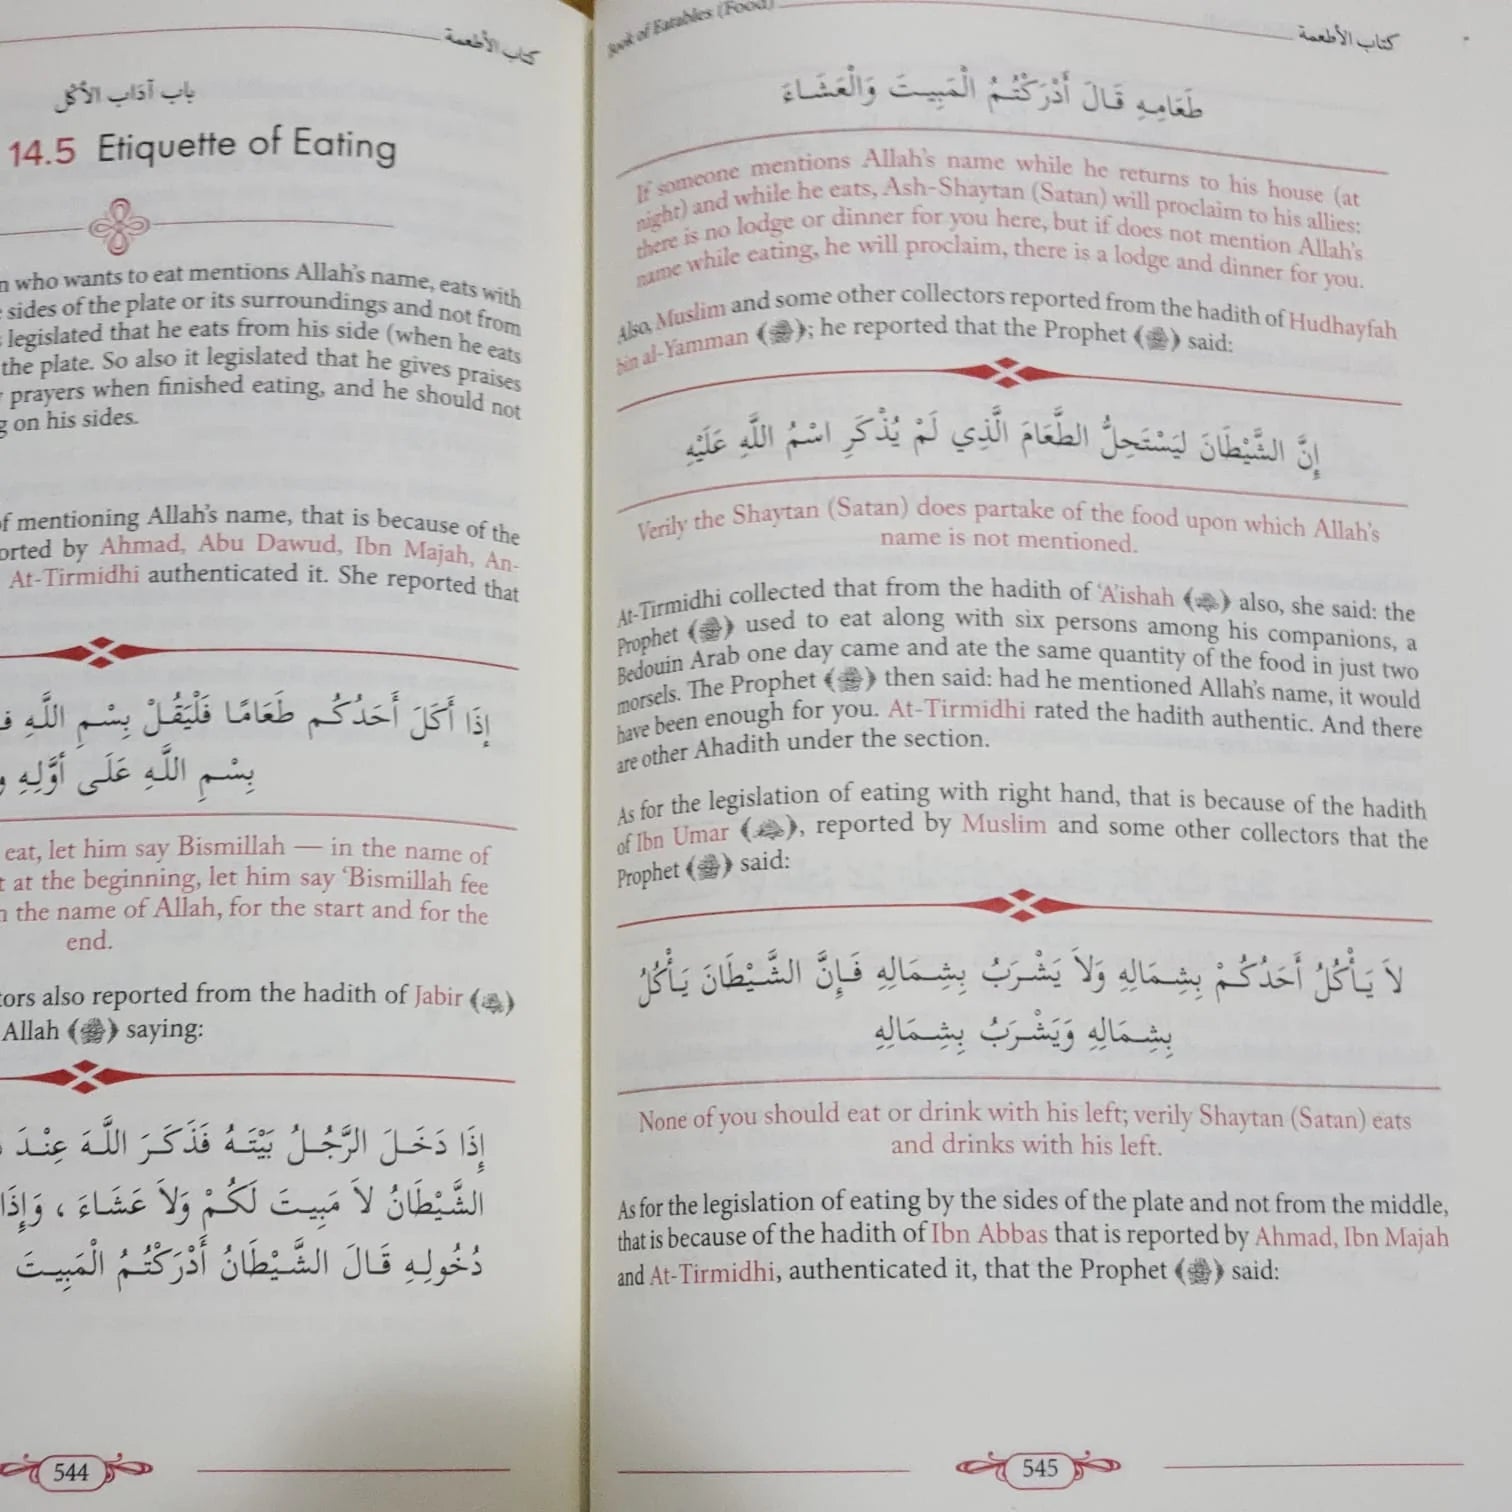 كتاب الأطعمة
باب آداب الأكل
14.5 Etiquette of Eating
who wants to eat mentions Allah's name, eats with
sides of the plate or its surroundings and not from
legislated that he eats from his side (when he eats
the plate. So also it legislated that he gives praises
prayers when finished eating, and he should not
on his sides.
of mentioning Allah's name, that is because of the
orted by Ahmad, Abu Dawud, Ibn Majah, An-
At-Tirmidhi authenticated it. She reported that
إِذَا أَكَلَ أَحَدُكُم طَعَامًا فَلْيَقُلْ بِسْمِ اللَّهِ
بِسْمِ اللَّهِ عَلَى أَوَّلِهِ
eat, let him say Bismillah — in the name of
at the beginning, let him say 'Bismillah fee
the name of Allah, for the start and for the
end.
tors also reported from the hadith of Jabir (ﷺ)
Allah (ﷺ) saying:
إِذَا دَخَلَ الرَّجُلُ بَيْتَهُ فَذَكَرَ اللَّهَ عِنْدَ
الشَّيْطَانُ لاَ مَبِيتَ لَكُمْ وَلاَ عَشَاءَ ، وَإِذَا
دُخُولِهِ قَالَ الشَّيْطَانُ أَدْرَكْتُمُ الْمَبِيتَ
544
Book of Eatables (Food)
كتاب الأطعمة
طَعَامِهِ قَالَ أَدْرَكْتُمُ الْمَبِيتَ وَالْعَشَاءَ
If someone mentions Allah's name while he returns to his house (at
night) and while he eats, Ash-Shaytan (Satan) will proclaim to his allies:
there is no lodge or dinner for you here, but if does not mention Allah's
name while eating, he will proclaim, there is a lodge and dinner for you.
Also, Muslim and some other collectors reported from the hadith of Hudhayfah
bin al-Yamman; he reported that the Prophet (ﷺ) said:
إِنَّ الشَّيْطَانَ لَيَسْتَحِلُّ الطَّعَامَ الَّذِي لَمْ يُذْكَرِ اسْمُ اللَّهِ عَلَيْهِ
Verily the Shaytan (Satan) does partake of the food upon which Allah's
name is not mentioned.
At-Tirmidhi collected that from the hadith of 'A'ishah also, she said: the
Prophet (ﷺ) used to eat along with six persons among his companions, a
Bedouin Arab one day came and ate the same quantity of the food in just two
morsels. The Prophet (ﷺ) then said: had he mentioned Allah's name, it would
have been enough for you. At-Tirmidhi rated the hadith authentic. And there
are other Ahadith under the section.
As for the legislation of eating with right hand, that is because of the hadith
of Ibn Umar, reported by Muslim and some other collectors that the
Prophet (ﷺ) said:
لاَ يَأْكُلُ أَحَدُكُمْ بِشِمَالِهِ وَلاَ يَشْرَبُ بِشِمَالِهِ فَإِنَّ الشَّيْطَانَ يَأْكُلُ
بِشِمَالِهِ وَيَشْرَبُ بِشِمَالِهِ
None of you should eat or drink with his left; verily Shaytan (Satan) eats
and drinks with his left.
As for the legislation of eating by the sides of the plate and not from the middle,
that is because of the hadith of Ibn Abbas that is reported by Ahmad, Ibn Majah
and At-Tirmidhi, authenticated it, that the Prophet (ﷺ) said:
545